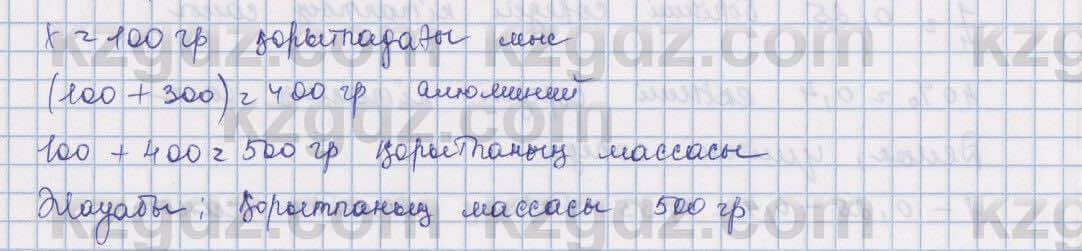 x = 100 гр қорытпадағы мыс
(100 + 300) = 400 гр алюминий
100 + 400 = 500 гр қорытпаның массасы
Жауабы: қорытпаның массасы 500 гр
kzgdz.com